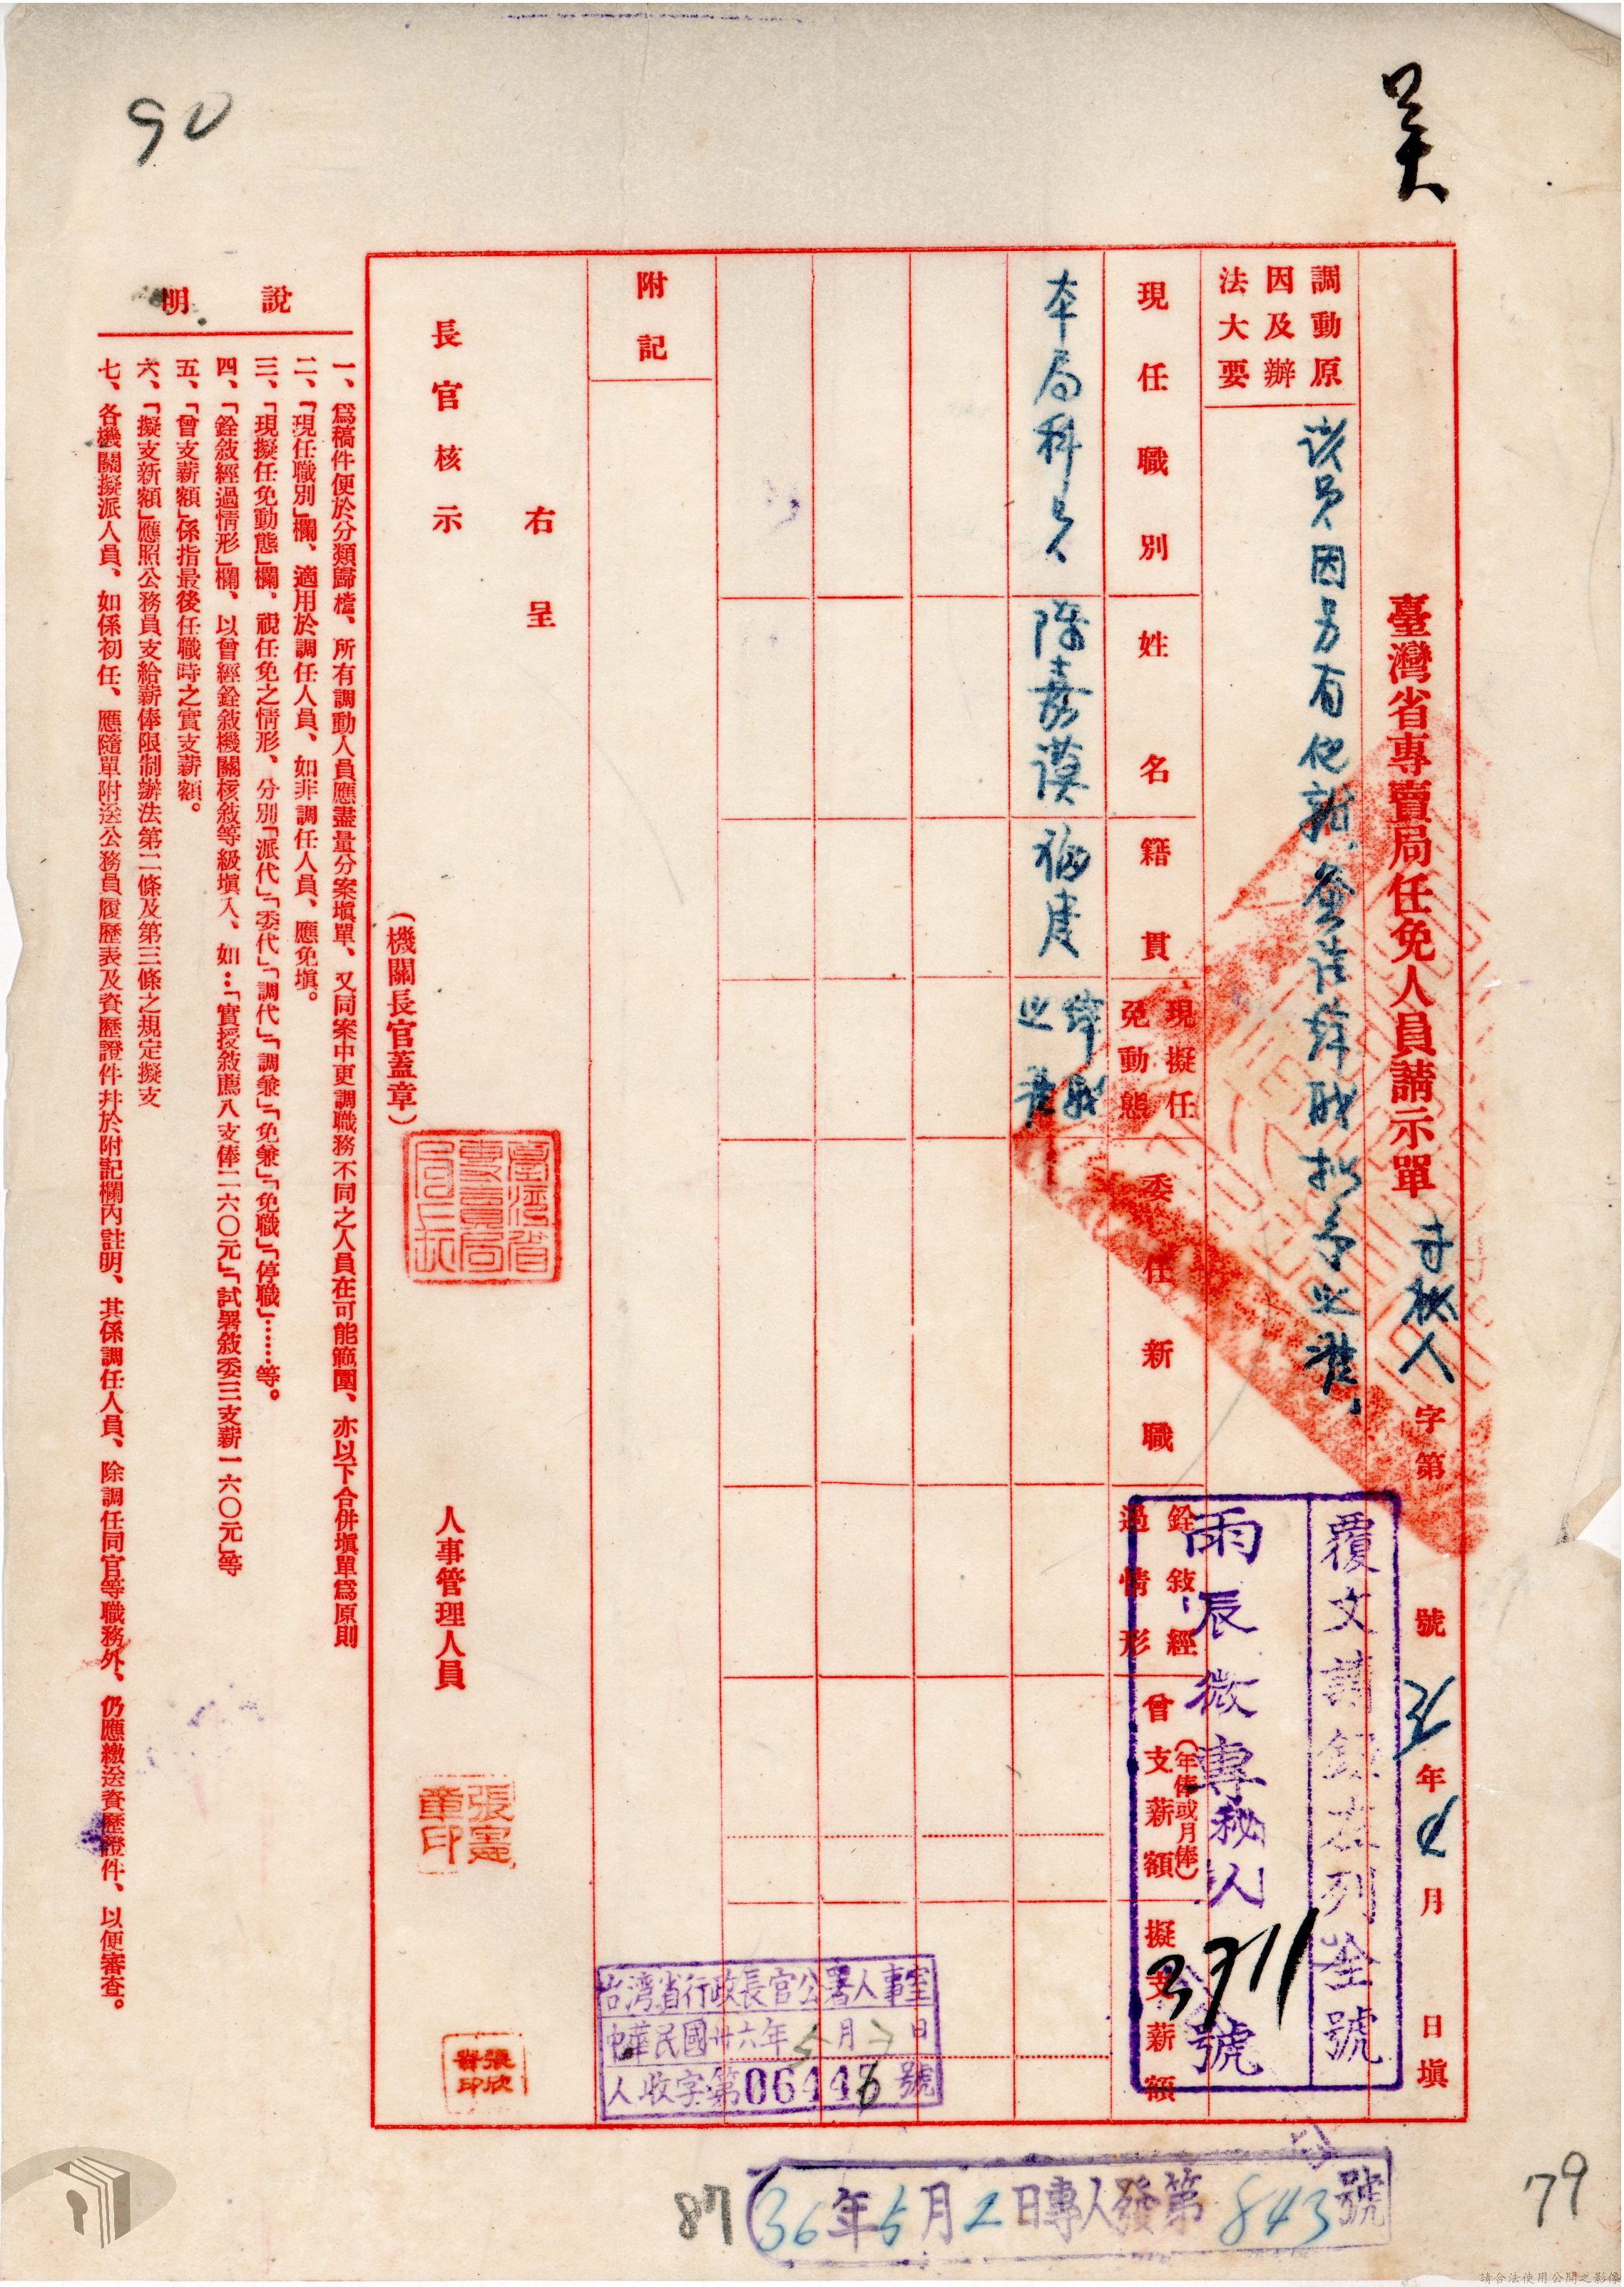 吳
90
臺灣省專賣局任免人員請示單 寺秘人字第 號 36年4月 日填
調動原因及辦法大要
該員因另有他就簽請辞职拟予照准
現任職別 姓名 籍貫 現擬任免動態 委任新職 銓敍經過情形 曾支薪額(年俸或月俸) 擬支薪額
本局科員 陳嘉謨 福建 辞職照准
附記
右呈
長官核示
(機關長官蓋章)
臺灣省專賣局局長章
人事管理人員
張憲章印
說明
一、爲稿件便於分類歸檔、所有調動人員應盡量分案塡單、又同案中更調職務不同之人員在可能範圍、亦以下合併塡單爲原則
二、「現任職別」欄、適用於調任人員、如非調任人員、應免塡。
三、「現擬任免動態」欄、視任免之情形、分別「派代」「委代」「調代」「調兼」「免兼」「免職」「停職」……等。
四、「銓敍經過情形」欄、以曾經銓敍機關核敍等級塡入、如:「實授敍薦八支俸二六〇元」「試署敍委三支薪一六〇元」等
五、「曾支薪額」係指最後任職時之實支薪額。
六、「擬支新額」應照公務員支給薪俸限制辦法第二條及第三條之規定擬支
七、各機關擬派人員、如係初任、應隨單附送公務員履歷表及資歷證件幷於附記欄內註明、其係調任人員、除調任同官等職務外、仍應繳送資歷證件、以便審查。
覆文請錄左列全號
雨辰微專秘人 3711 號
台湾省行政長官公署人事室
中華民國卅六年5月2日
人收字第06446號
36年5月2日專人發第843號
87
79
請合法使用公開之影像